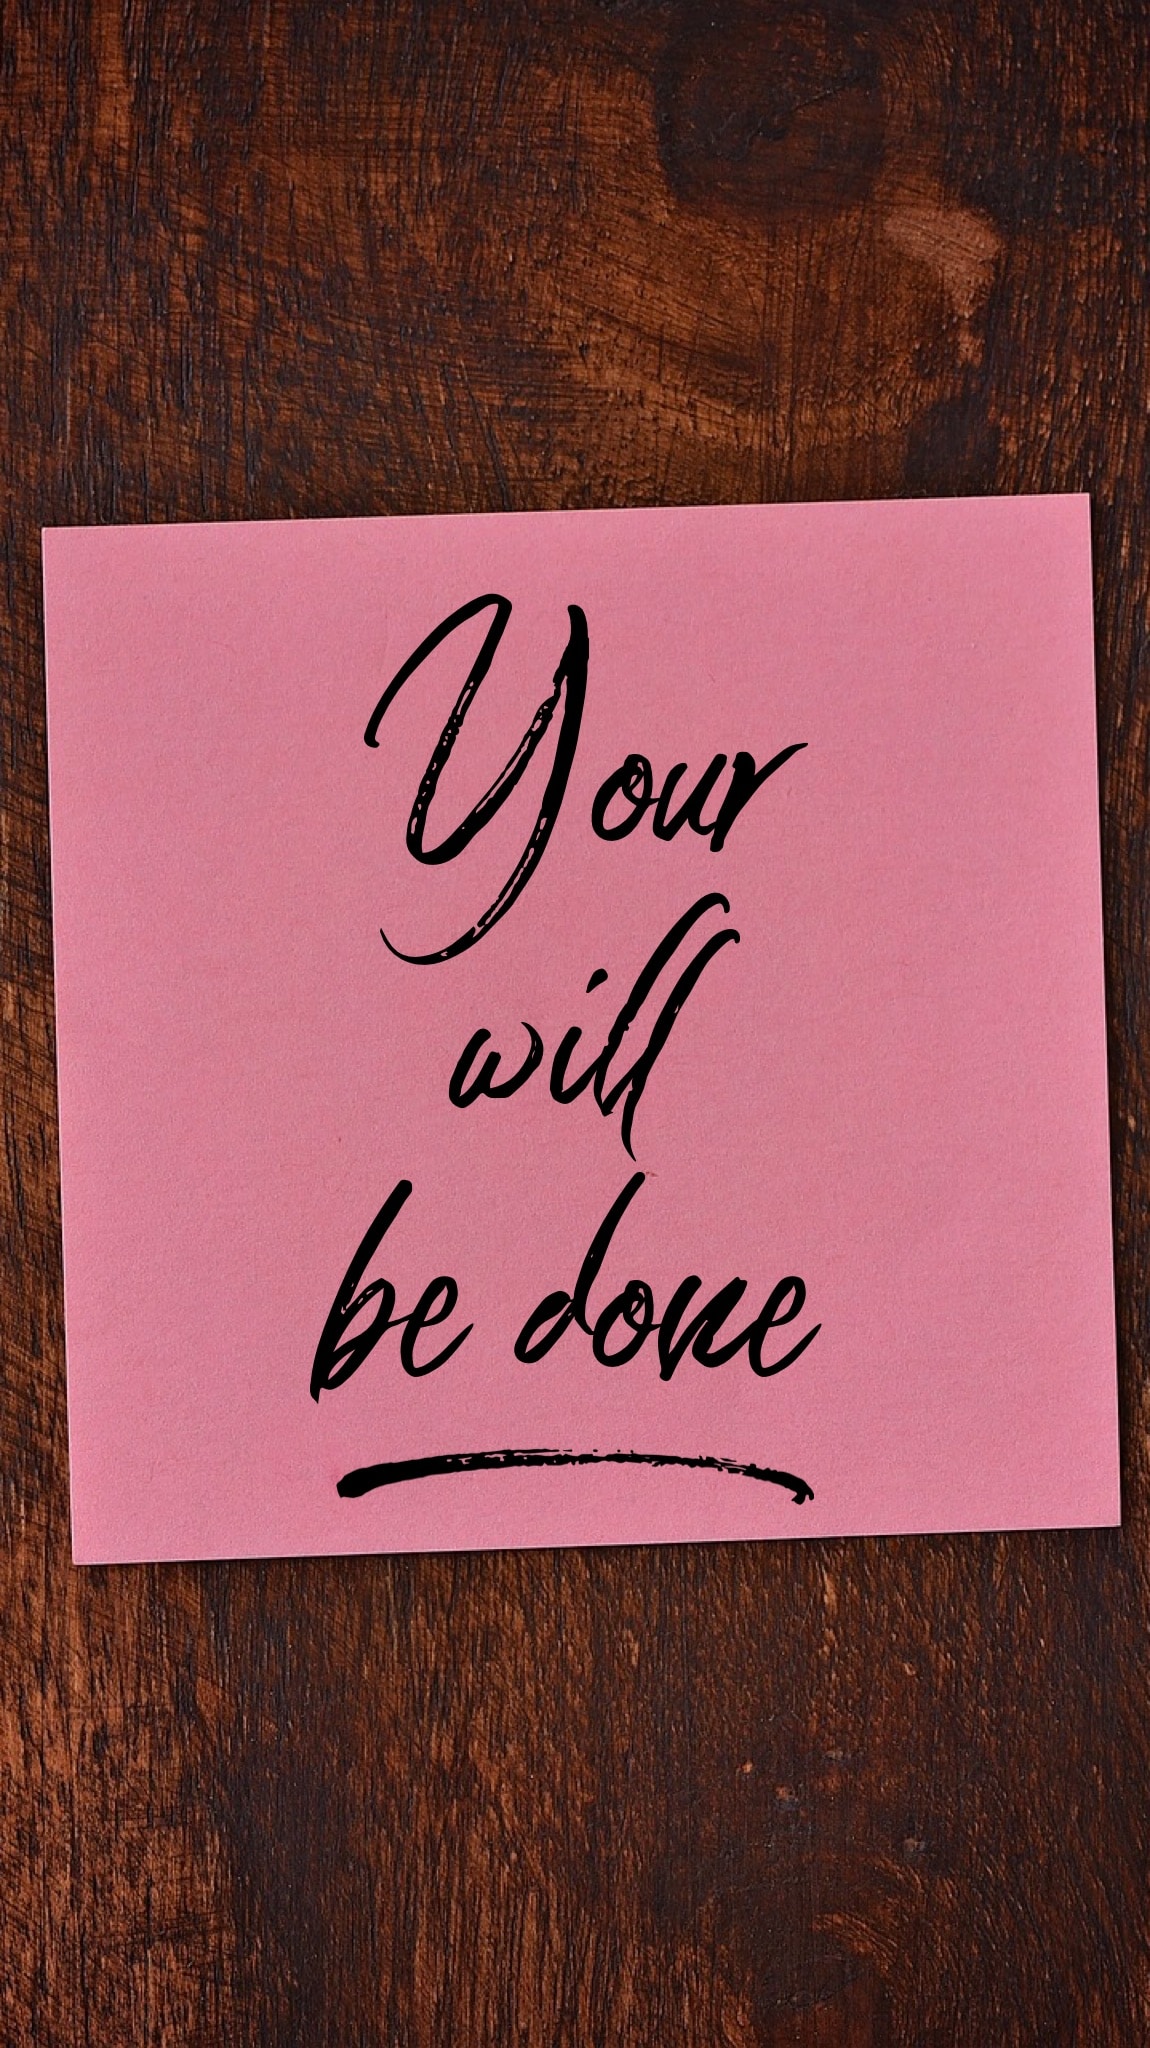 Your
will
be done